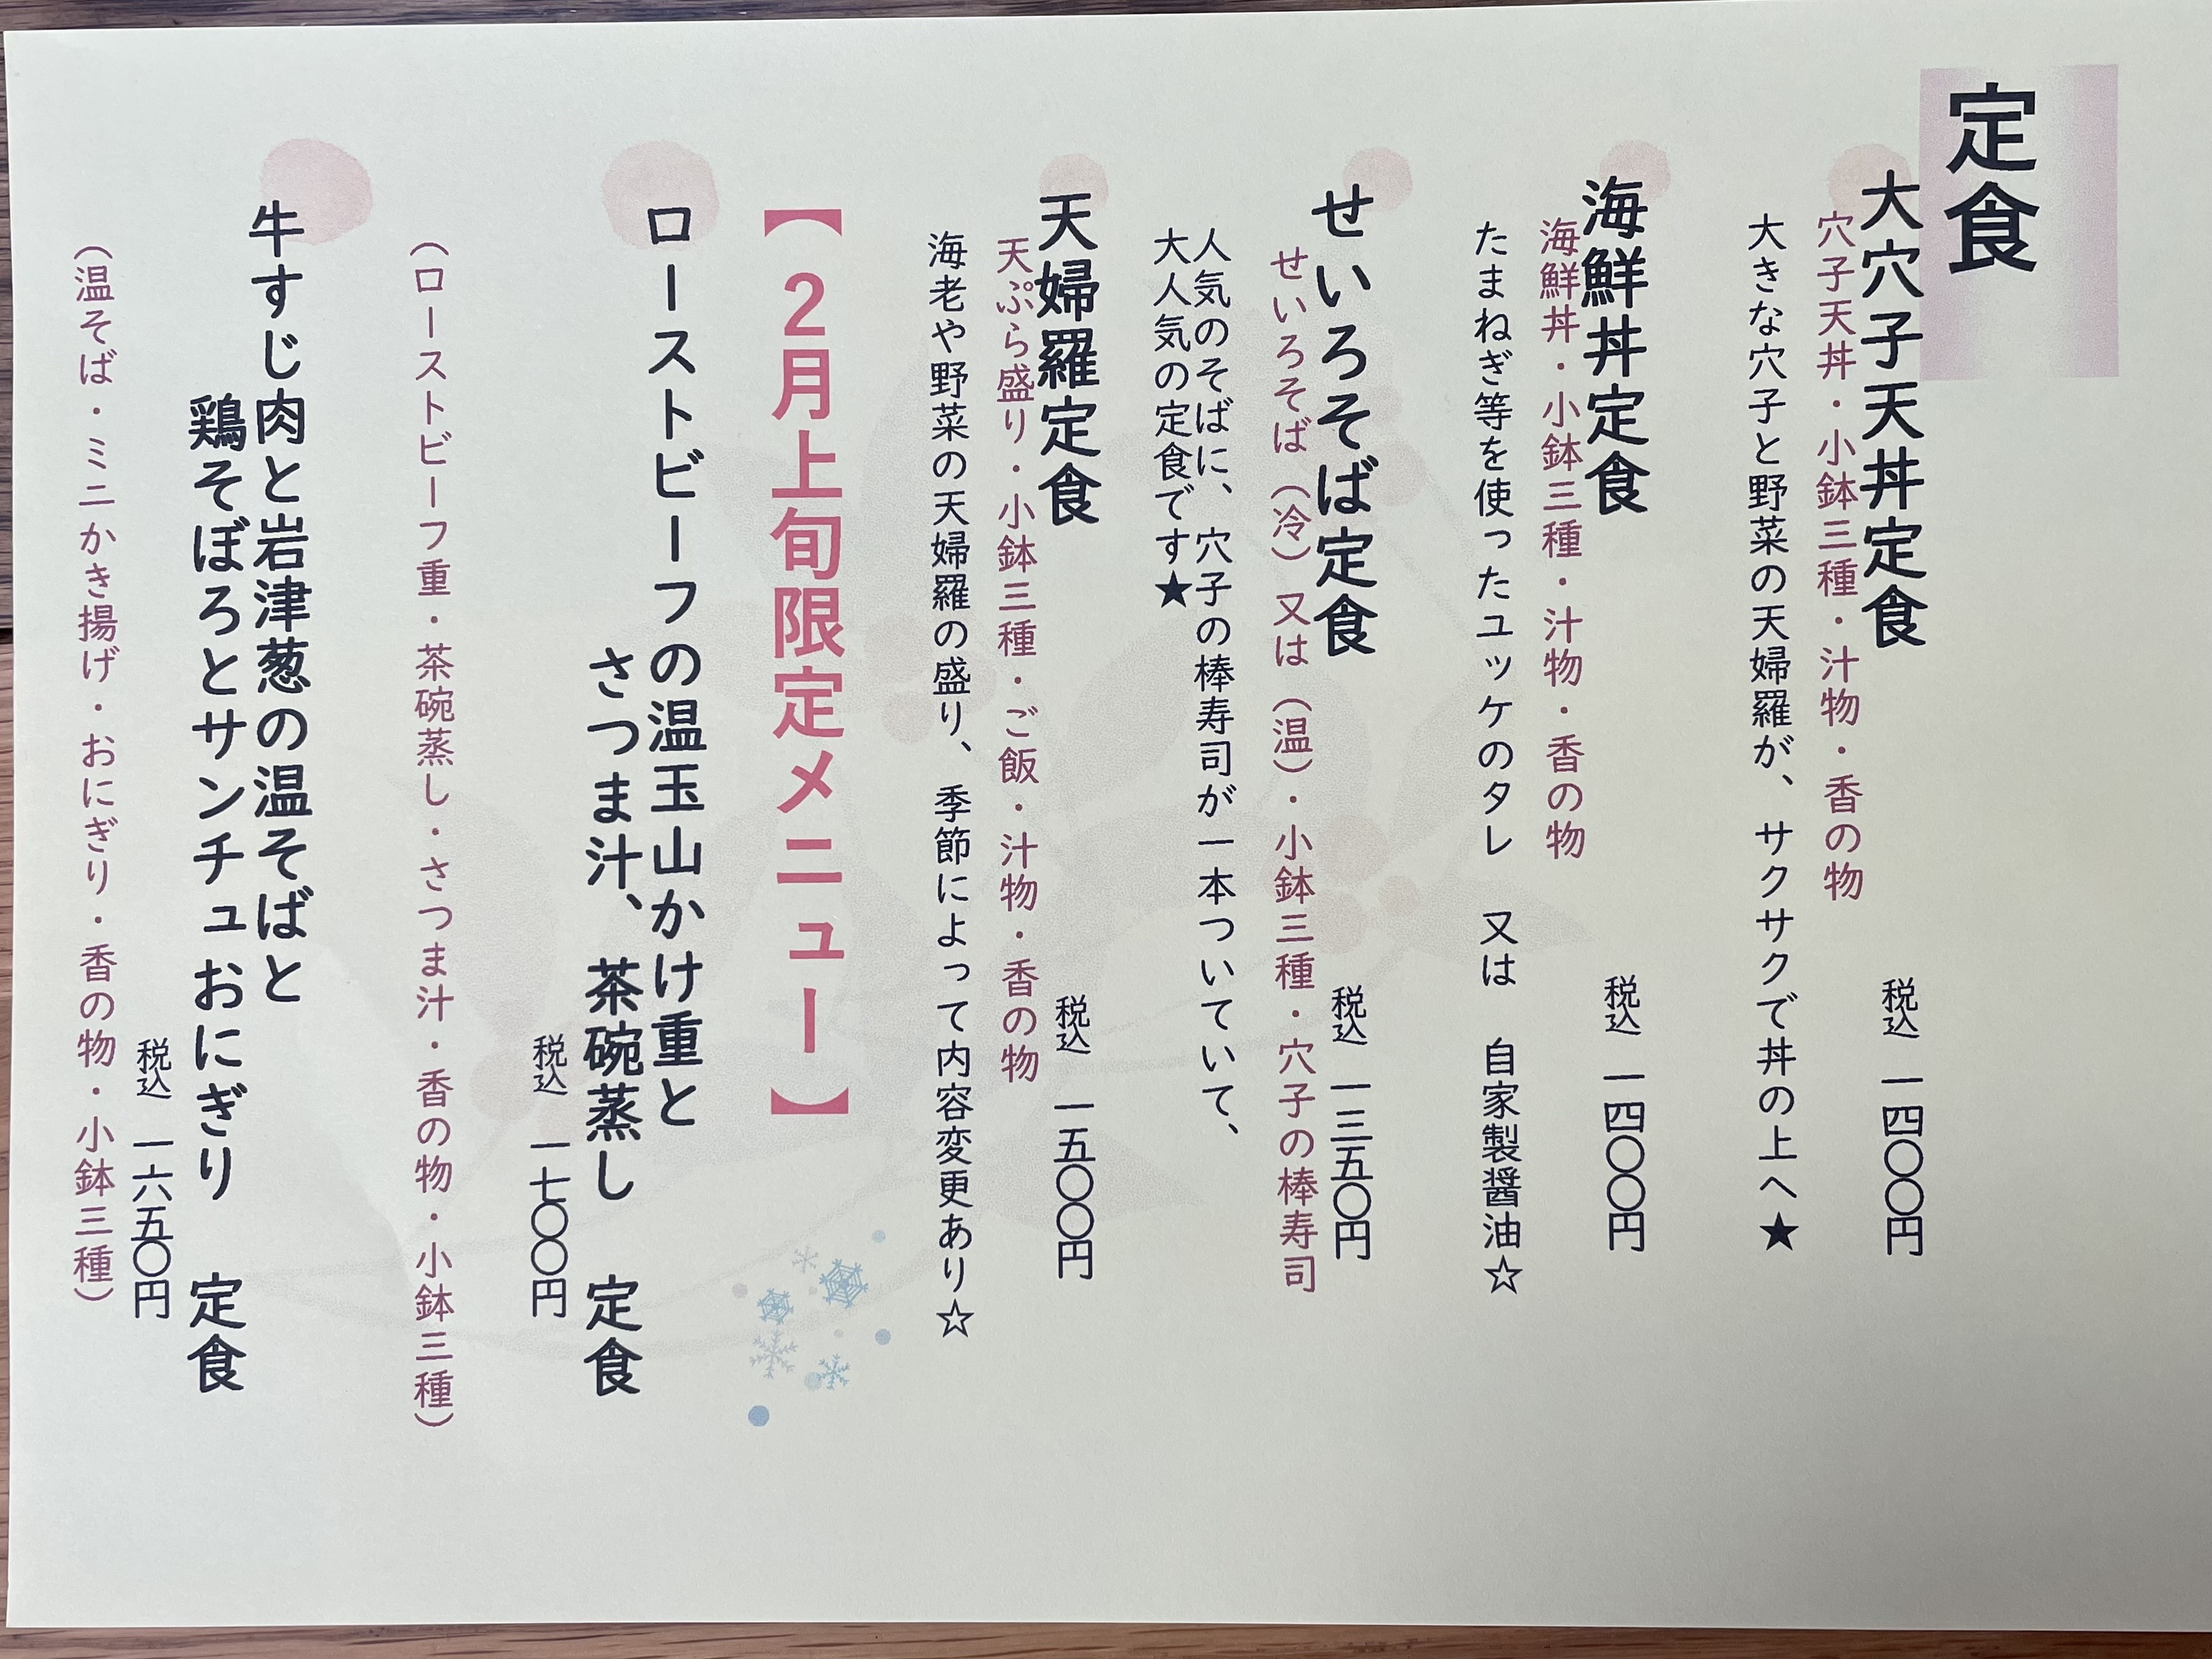 定食
大穴子天丼定食　税込　一四〇〇円
穴子天丼・小鉢三種・汁物・香の物
大きな穴子と野菜の天婦羅が、サクサクで丼の上へ★
海鮮丼定食　税込　一四〇〇円
海鮮丼・小鉢三種・汁物・香の物
たまねぎ等を使ったユッケのタレ　又は　自家製醤油☆
せいろそば定食　税込　一三五〇円
せいろそば（冷）又は（温）・小鉢三種・穴子の棒寿司
人気のそばに、穴子の棒寿司が一本ついていて、
大人気の定食です★
天婦羅定食　税込　一五〇〇円
天ぷら盛り・小鉢三種・ご飯・汁物・香の物
海老や野菜の天婦羅の盛り、季節によって内容変更あり☆
【２月上旬限定メニュー】
ローストビーフの温玉山かけ重と
さつま汁、茶碗蒸し　定食
税込　一七〇〇円
（ローストビーフ重・茶碗蒸し・さつま汁・香の物・小鉢三種）
牛すじ肉と岩津葱の温そばと
鶏そぼろとサンチュおにぎり　定食
税込　一六五〇円
（温そば・ミニかき揚げ・おにぎり・香の物・小鉢三種）